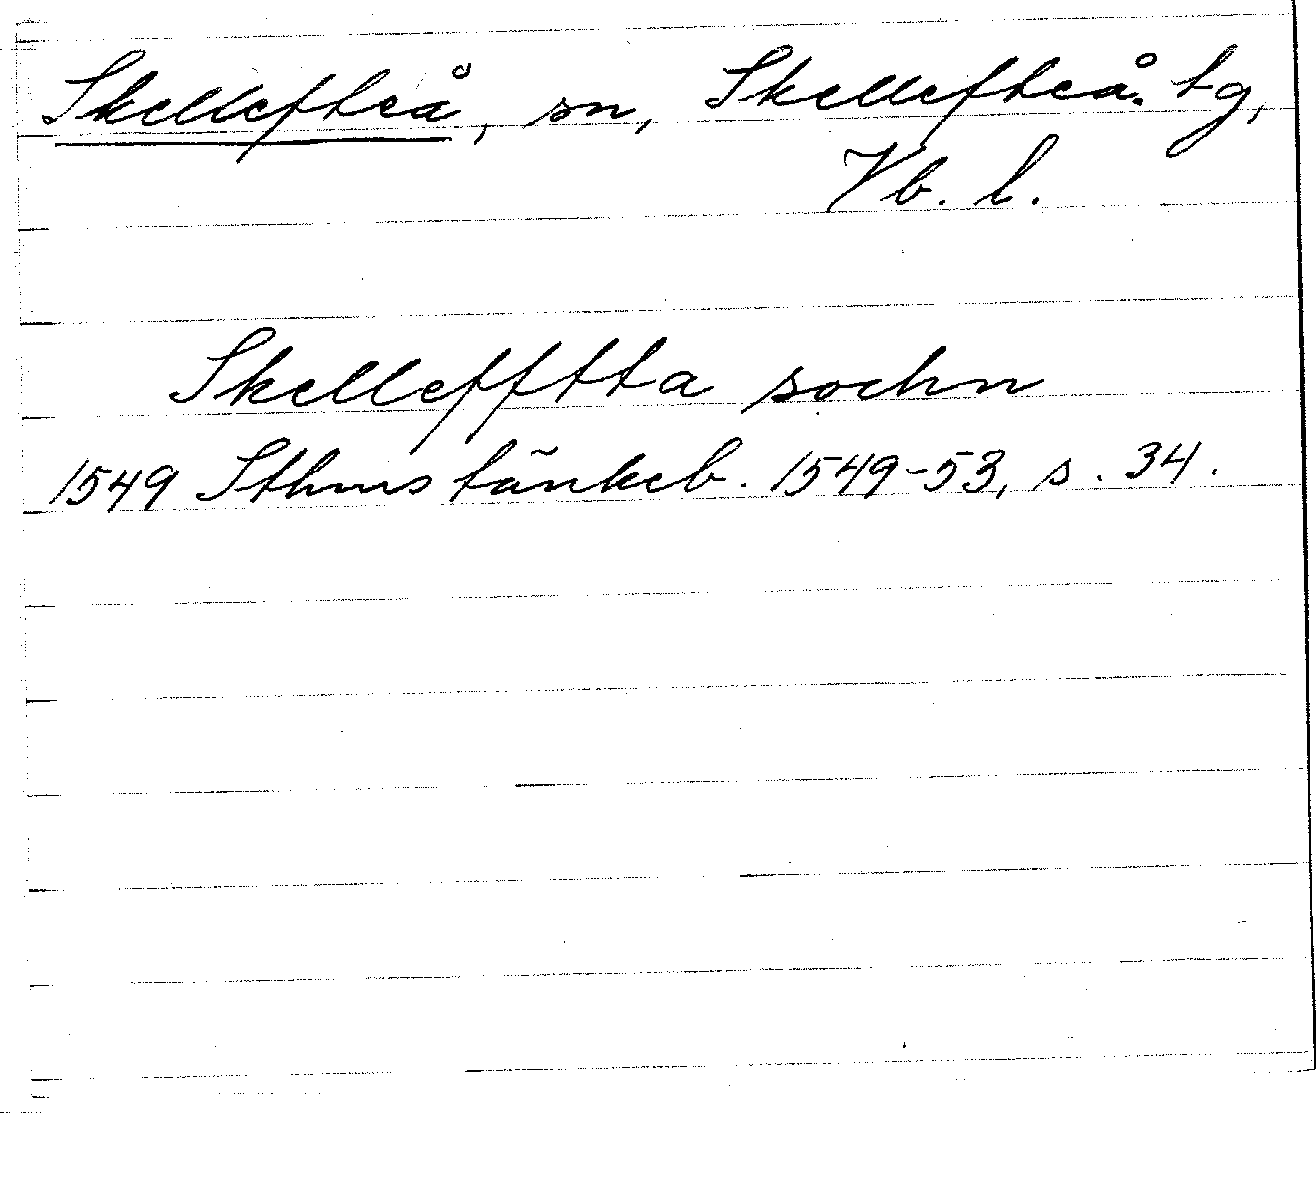 Skellefteå, sn, Skellefteå. tg,
Vb. l.
Skellefftta sochn
1549 Sthms tänkeb. 1549-53, s. 34.